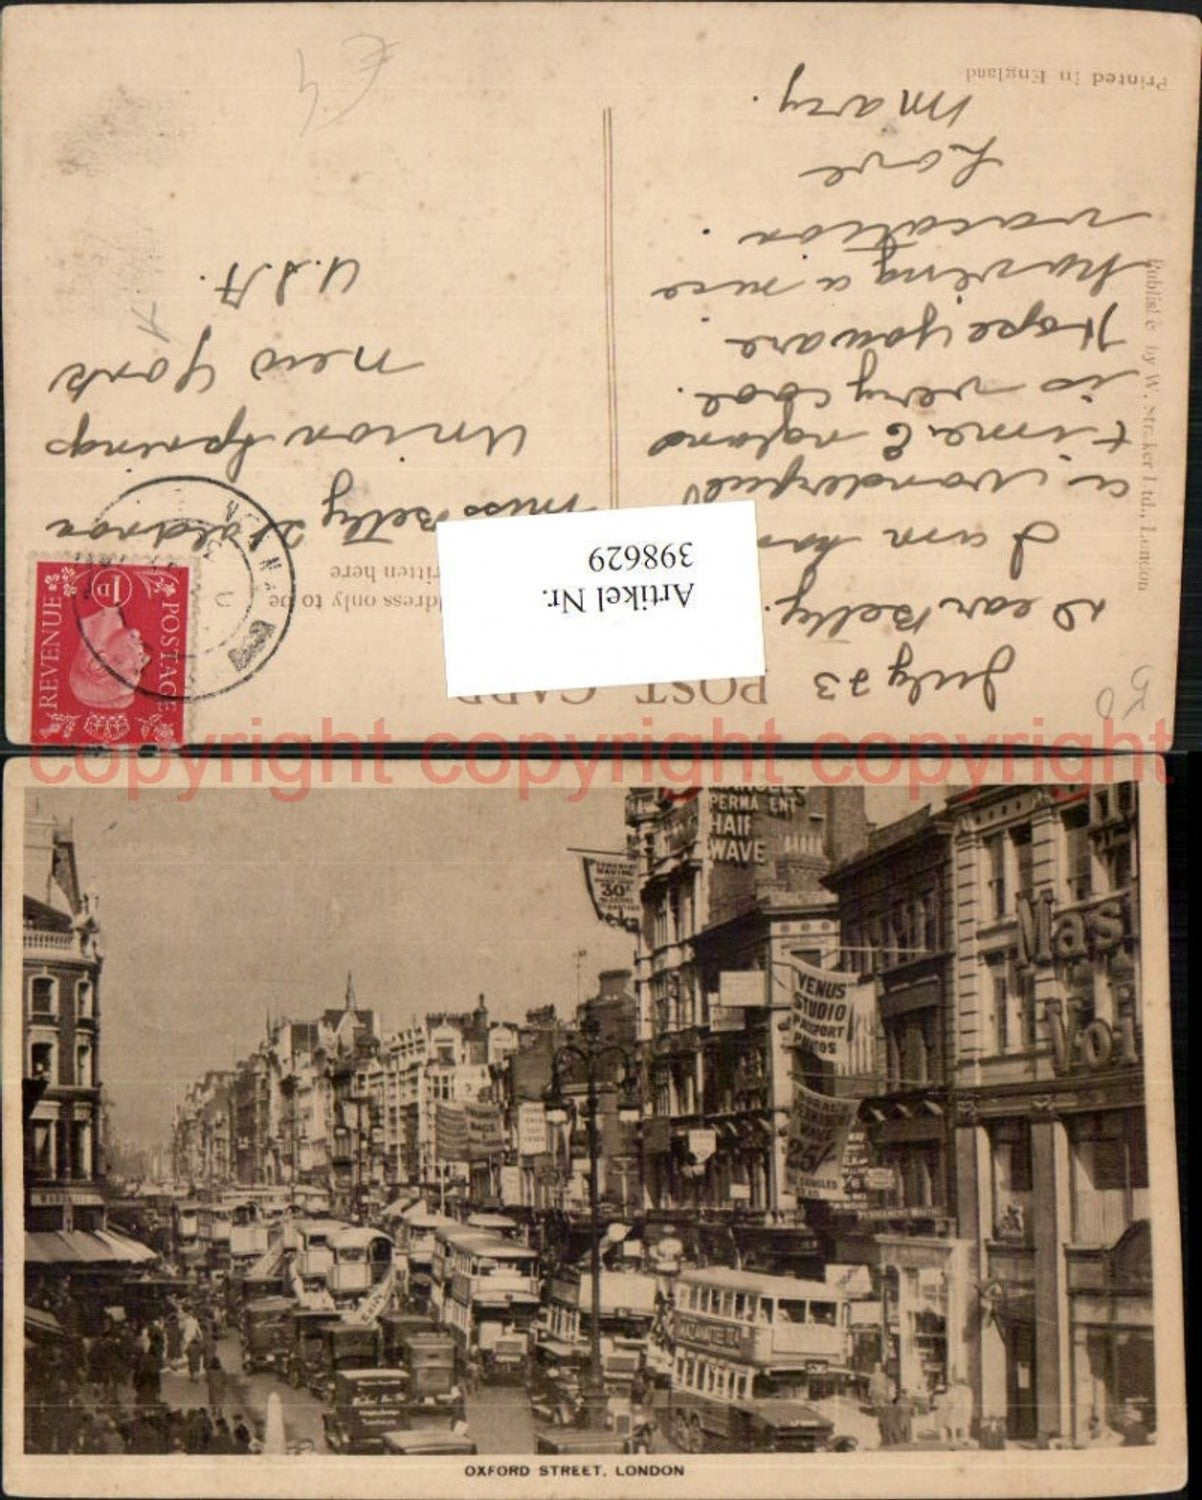 POST CARD
July 23
Dear Betty.
I am
a wonderful
time. England
is very cool.
Hope you are
having a nice
vacation.
Love
Mary.
Miss Betty
Union Springs
New York
U.S.A.
Printed in England
by W. Straker Ltd., London
only to be
POSTAGE
REVENUE
1D
Artikel Nr.
398629
£4
50
copyright copyright copyright
PERMA ENT
HAIR
WAVE
30/-
VENUS
STUDIO
PASSPORT
PHOTOS
25/-
OXFORD STREET, LONDON